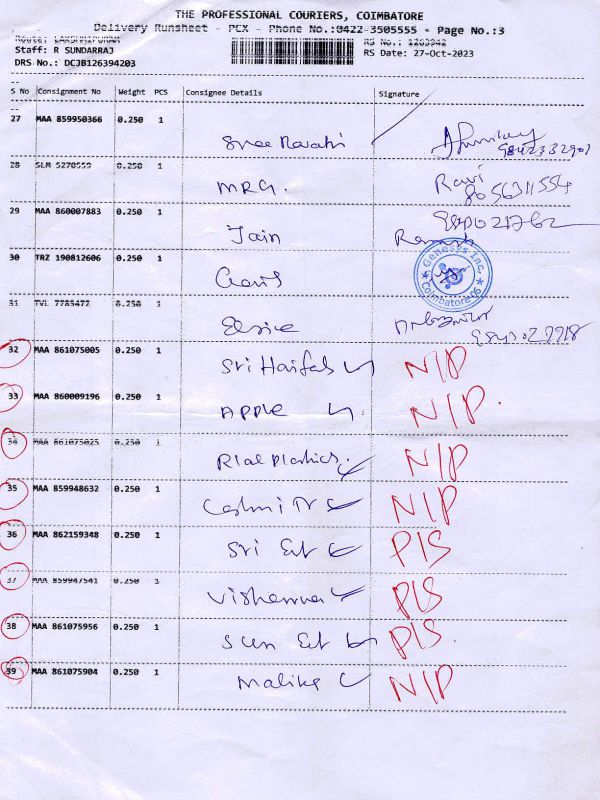 THE PROFESSIONAL COURIERS, COIMBATORE
Delivery Runsheet - PCX - Phone No.:0422-3505555 - Page No.:3
Route: LAKSHMIPURAM RS No.: 1263942
Staff: R SUNDARRAJ RS Date: 27-Oct-2023
DRS No.: DCJB126394203
S No Consignment No Weight PCS Consignee Details Signature
27 MAA 859950366 0.250 1
9842332901
28 SLM 5270559 0.250 1
MRG. Ravi
8056311554
29 MAA 860007883 0.250 1
Jain
30 TRZ 190812606 0.250 1
Genesys Inc. Coimbatore
31 TVL 7785472 0.250 1
32 MAA 861075005 0.250 1
Sri N/P
33 MAA 860009196 0.250 1
Apple N/P
34 MAA 861075025 0.250 1
Plastics. N/P
35 MAA 859948632 0.250 1
N/P
36 MAA 862159348 0.250 1
Sri Ent P/S
37 MAA 859947541 0.250 1
P/S
38 MAA 861075956 0.250 1
Sun Ent P/S
39 MAA 861075904 0.250 1
Malika N/P